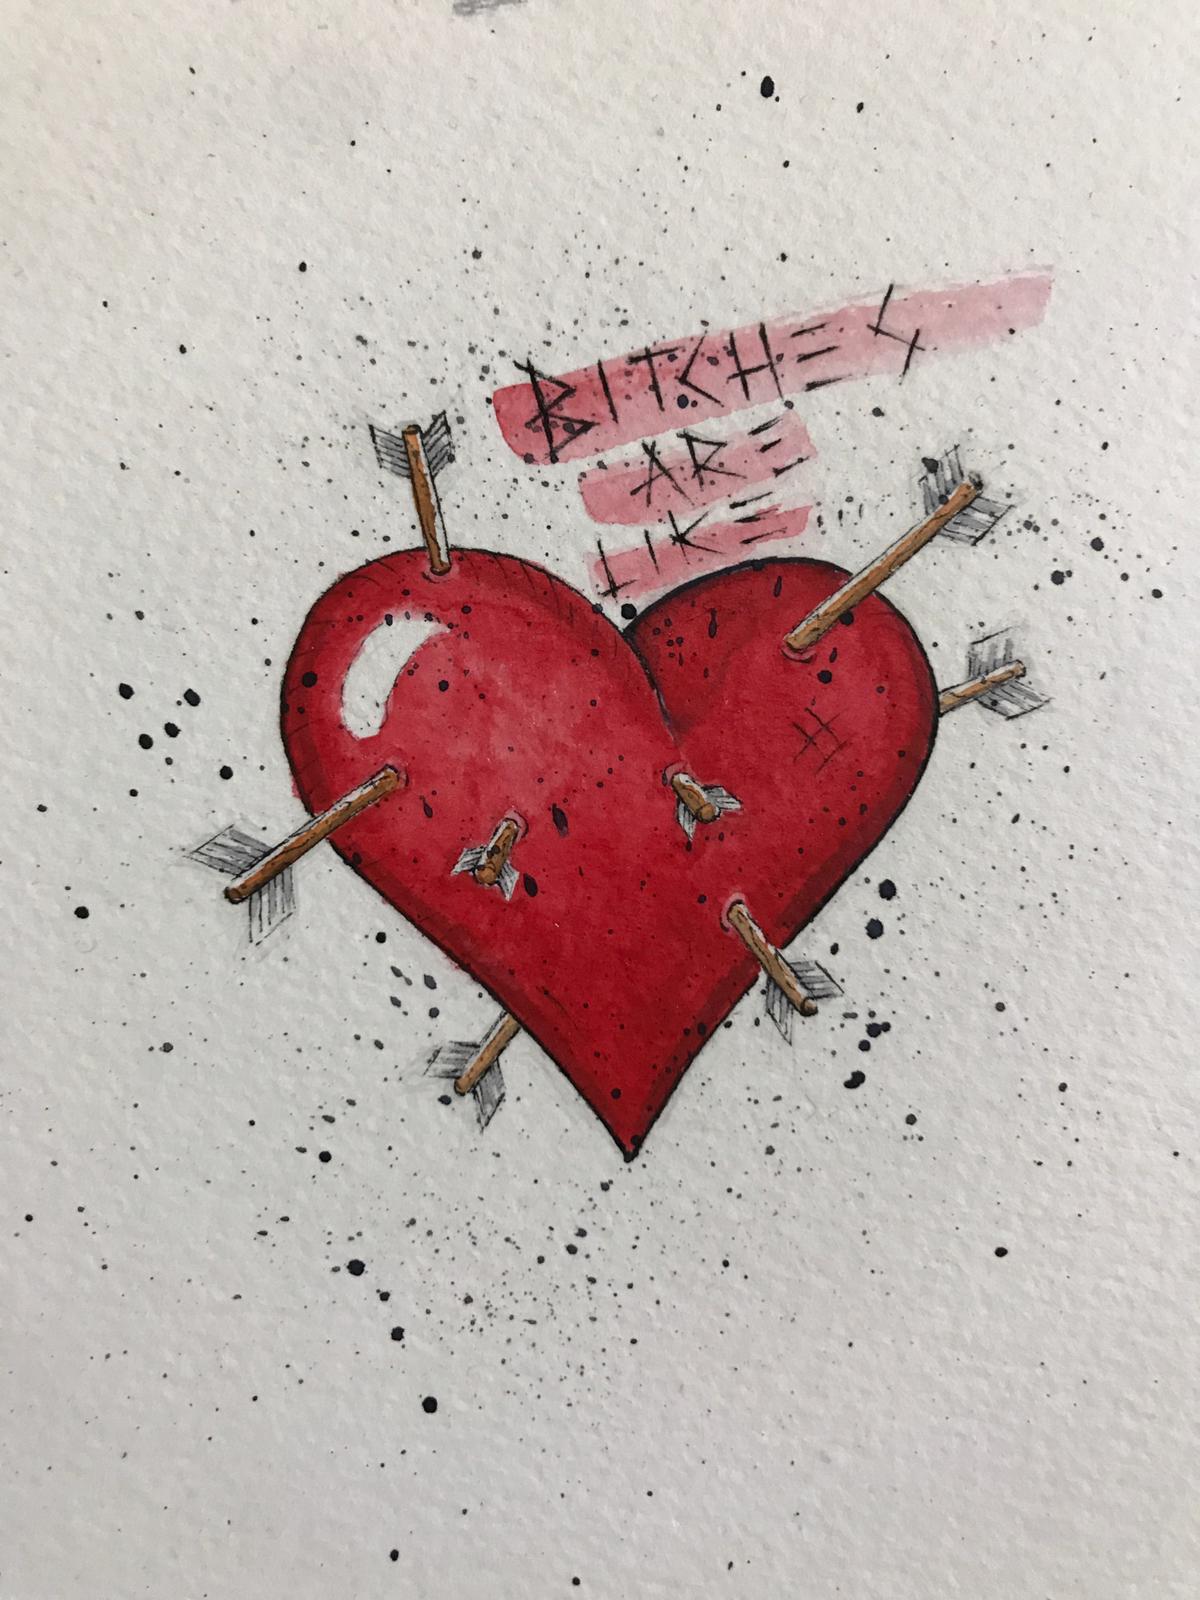 BITCHES
ARE
LIKE